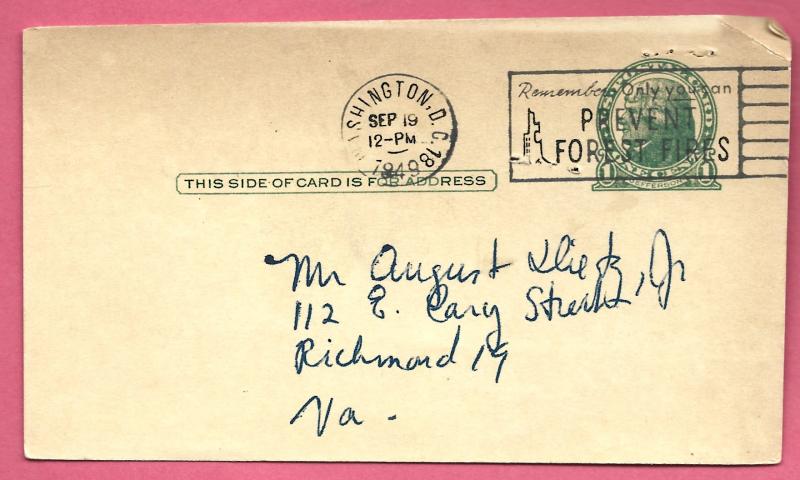 Remember Only you can
PREVENT
FOREST FIRES
WASHINGTON, D.C. 18
SEP 19
12-PM
1949
THIS SIDE OF CARD IS FOR ADDRESS
1 JEFFERSON 1
Mr August Dietz, Jr
112 E. Cary Street
Richmond 19
Va.